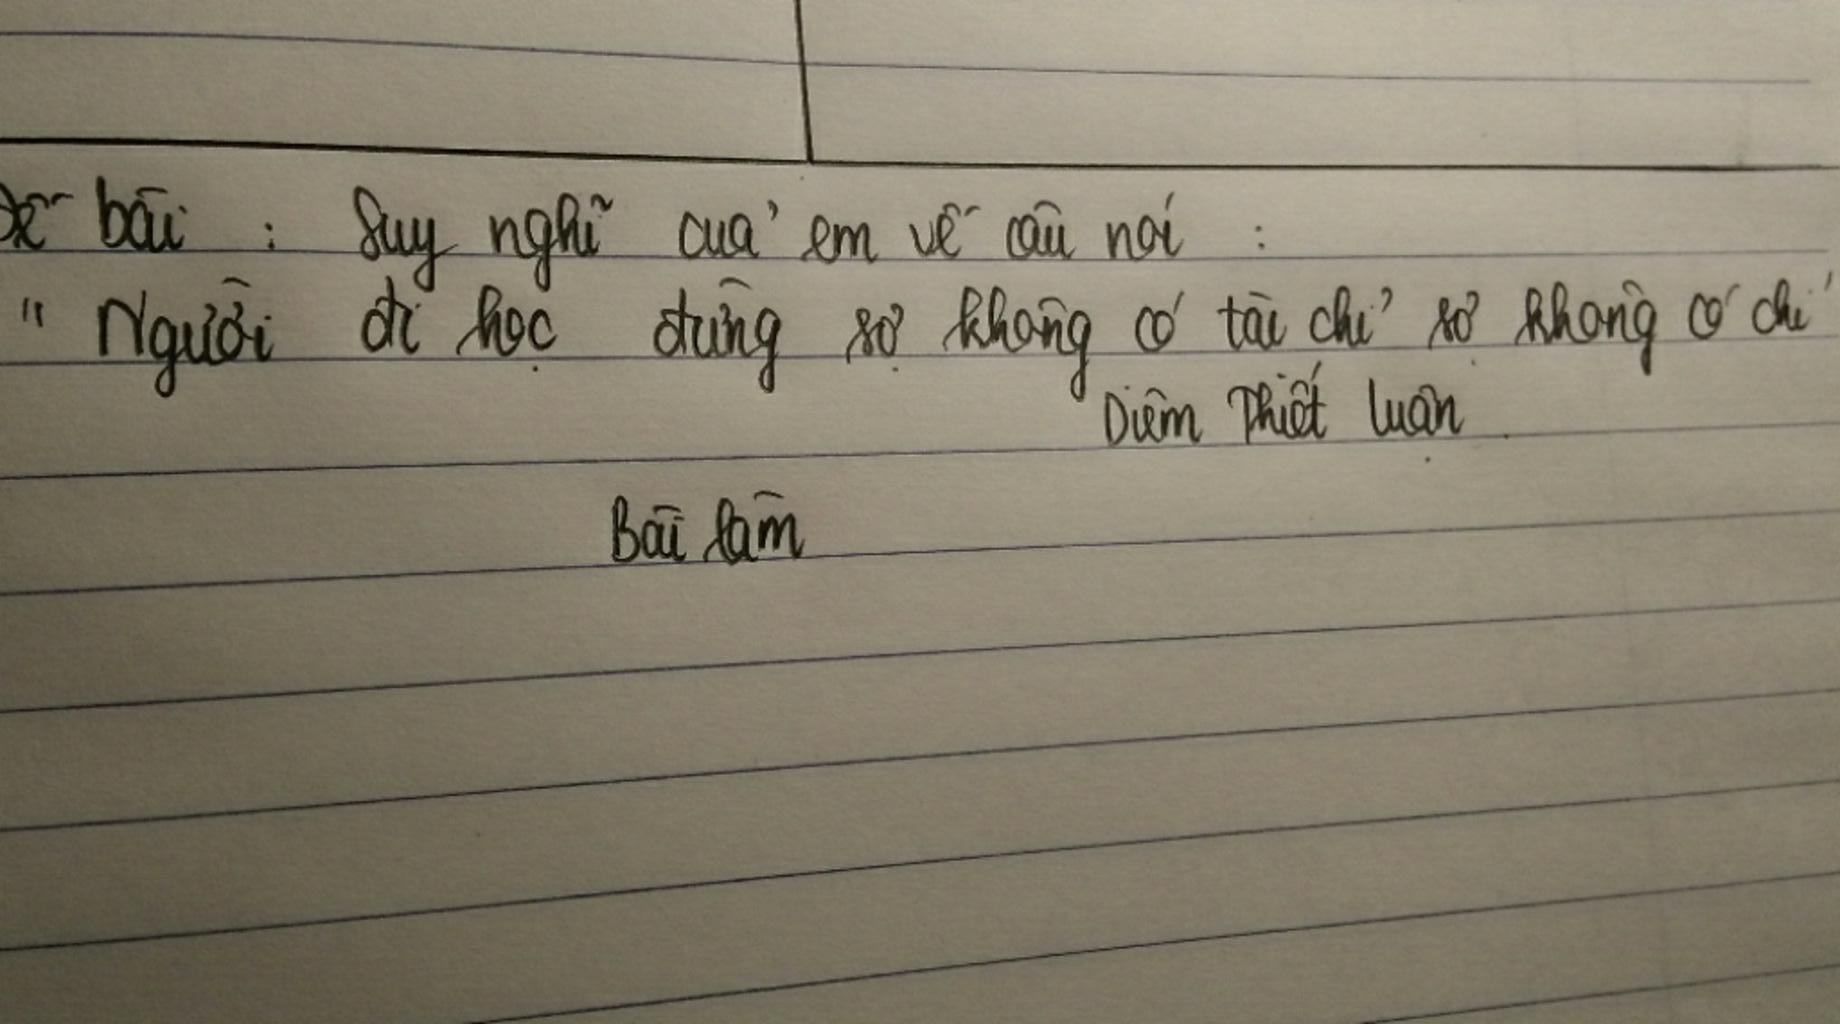 Đề bài : Suy nghĩ của em về câu nói :
" Người đi học đừng sợ không có tài chỉ sợ không có chí
Diêm Thiết Luận
Bài làm